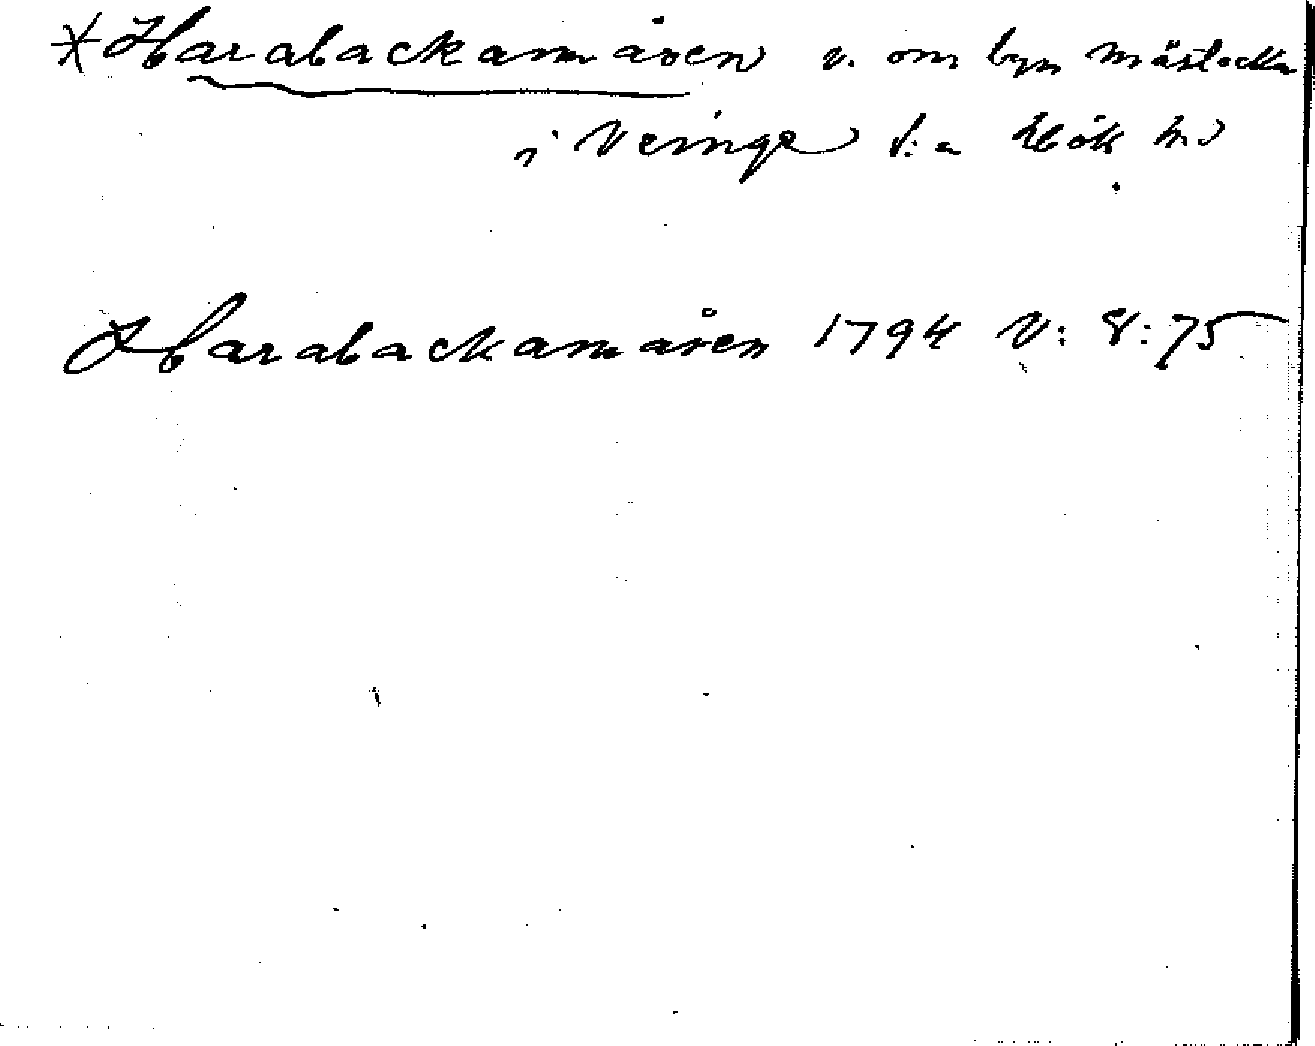 * Harabackamåsen v. om byn Mästocka
i Veinge s:a Hök hd
Harabackamåsen 1794 V: 8:75